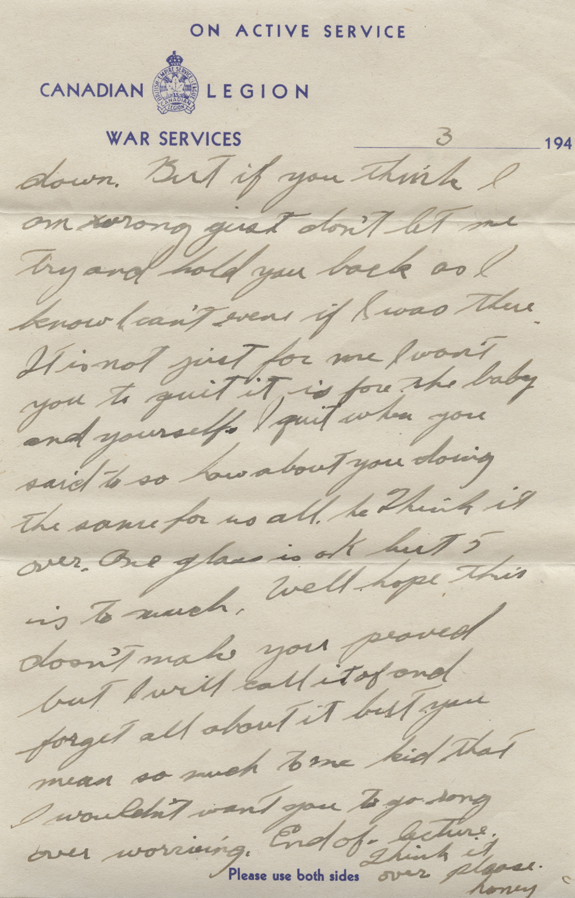 ON ACTIVE SERVICE
CANADIAN LEGION
WAR SERVICES 3 194
down. But if you think I
am wrong just don't let me
try and hold you back as I
know I can't even if I was there.
It is not just for me I want
you to quit it, is for the baby
and yourself. I quit when you
said to so how about you doing
the same for us all. Think it
over. One glass is ok but 5
is to much. Well hope this
dosn't make you peaved
but I will call it of and
forget all about it but you
mean so much to me kid that
I wouldn't want you to go rong
over worrieing. End of lecture.
Think it
over please.
honey
Please use both sides